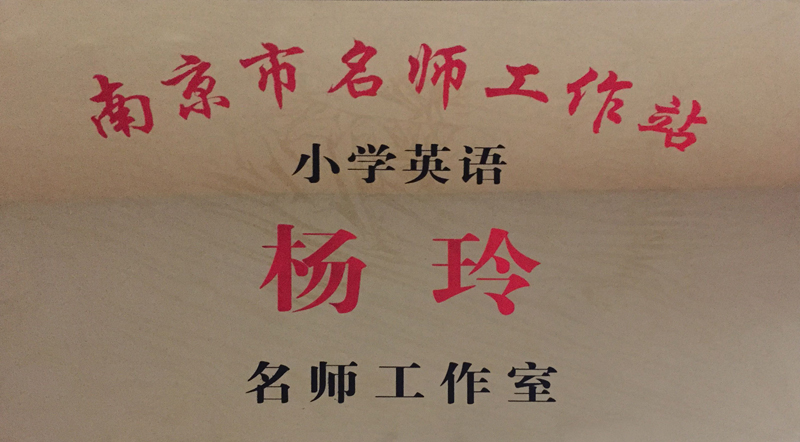 南京市名师工作站
小学英语
杨玲
名师工作室